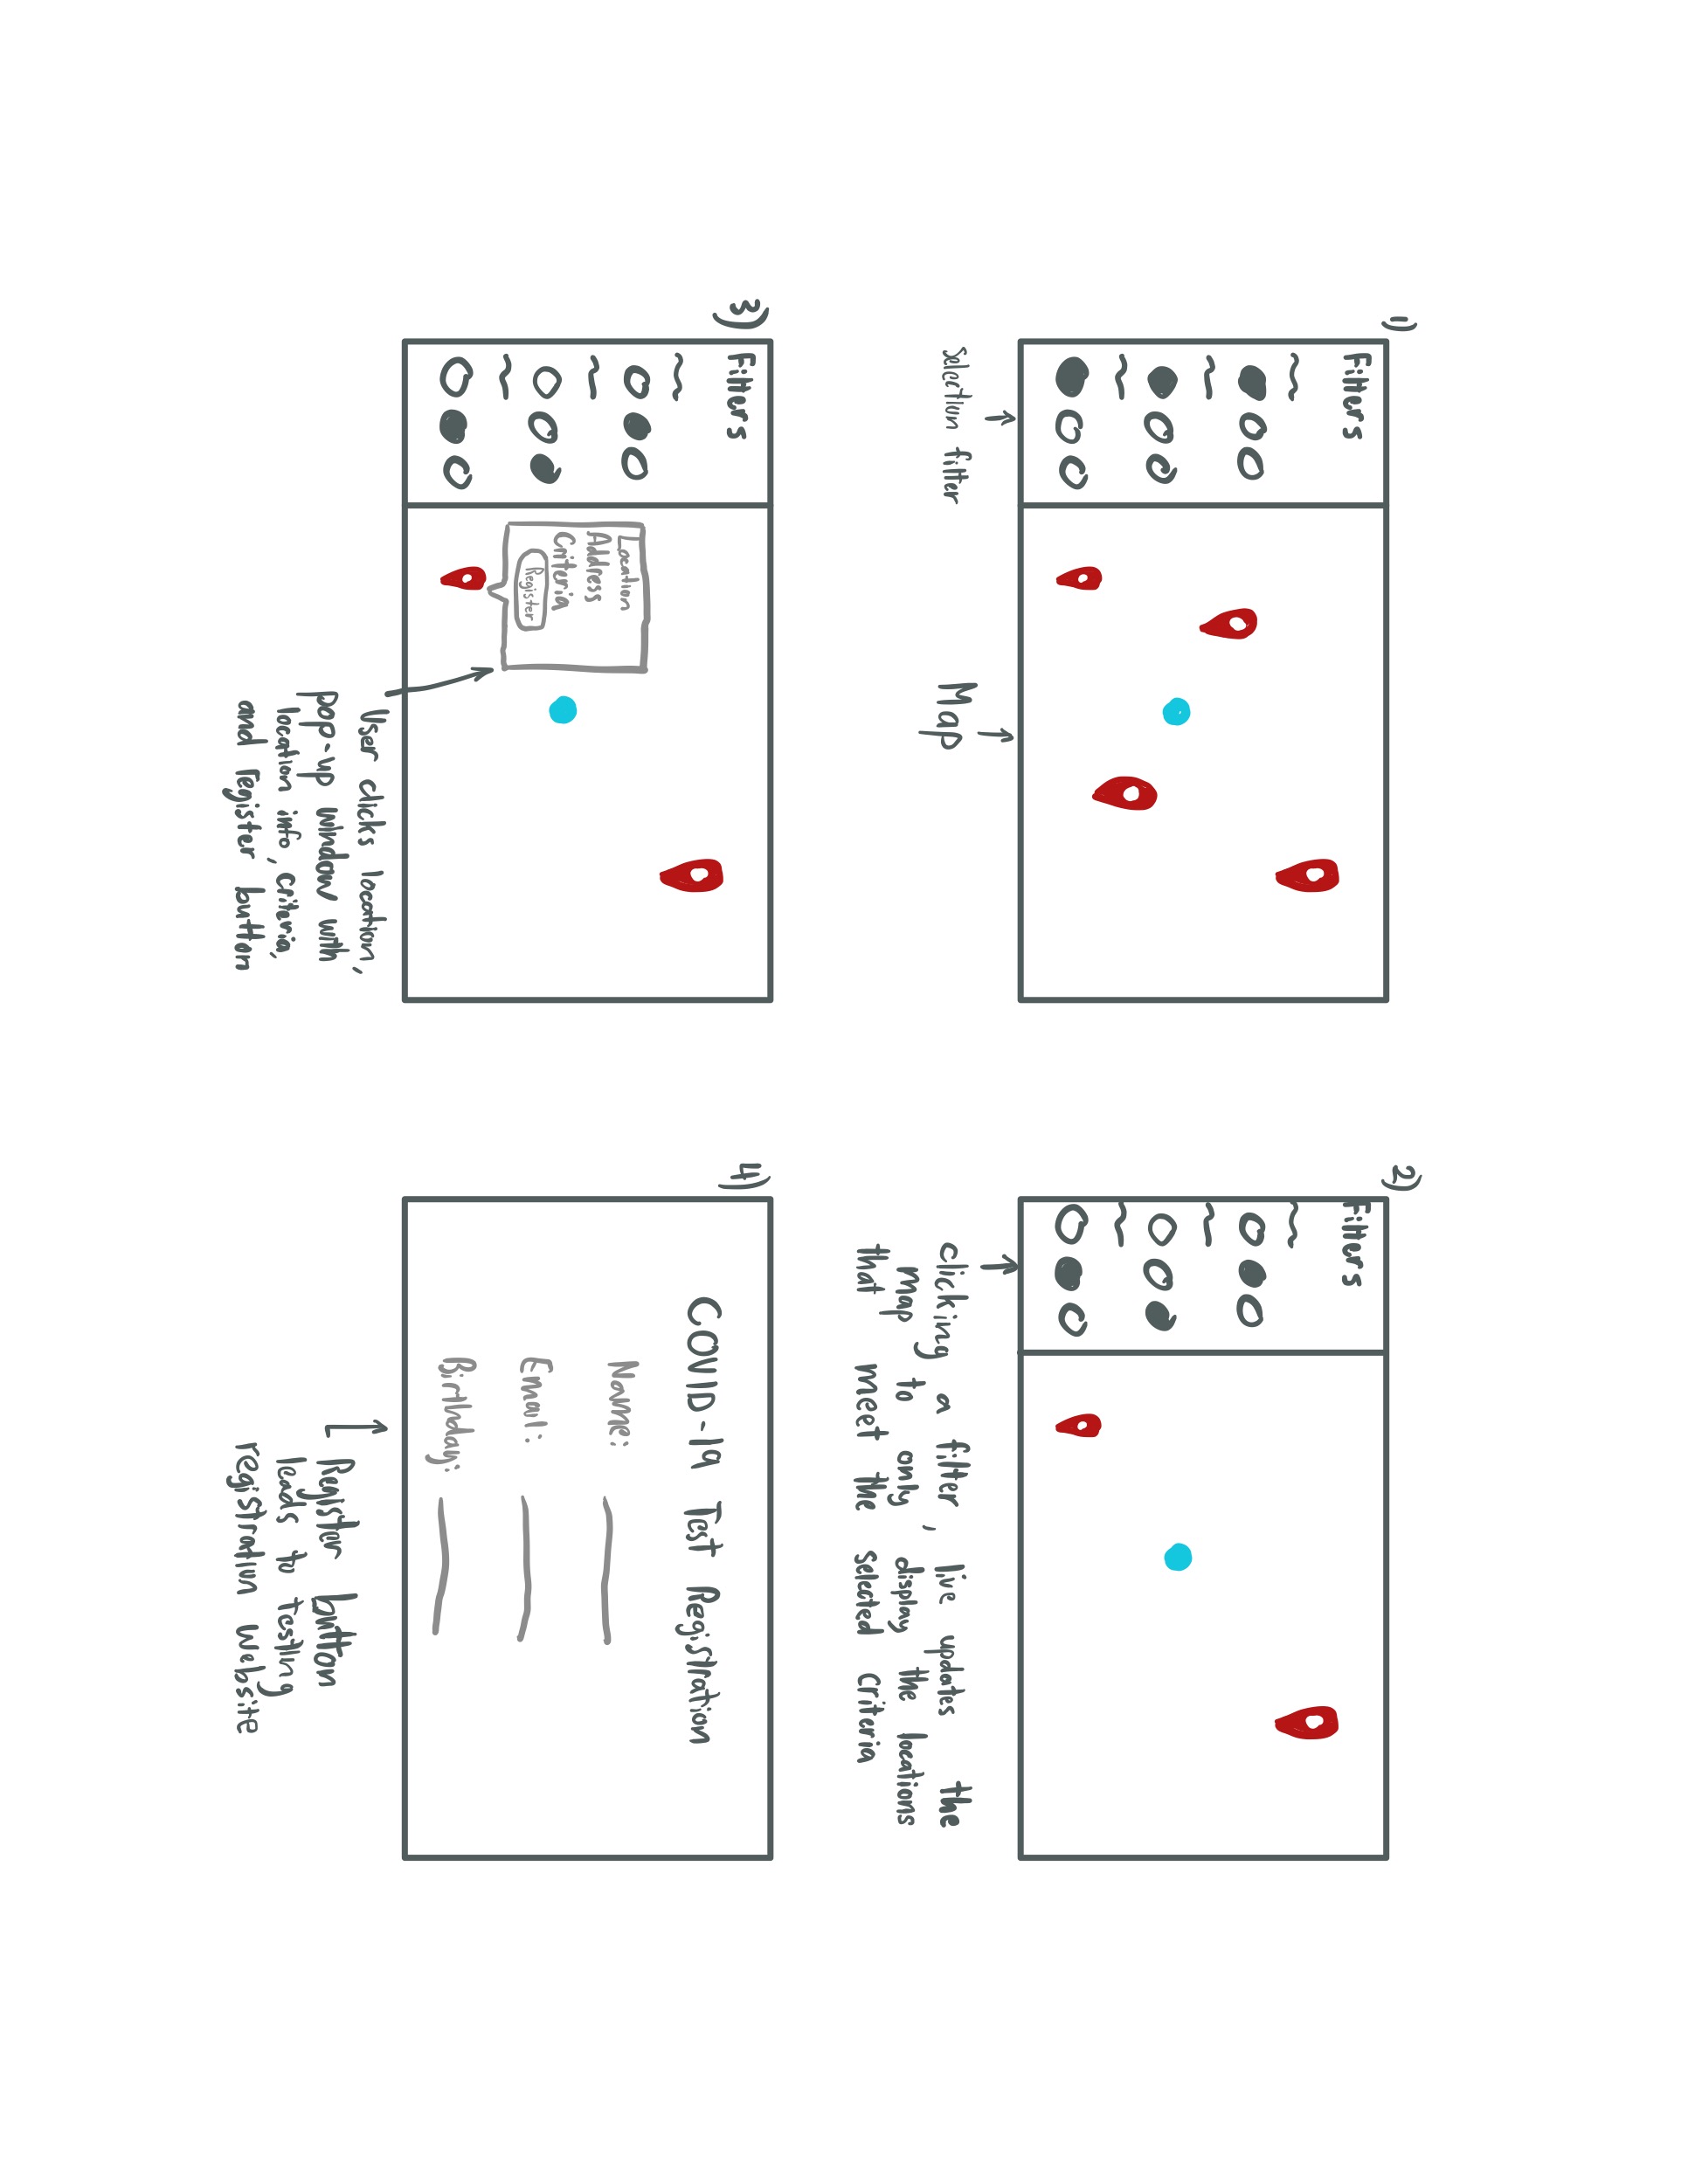 1)
Filters
selection filter
Map
2)
Filters
clicking a filter, live updates the
map to only display the locations
that meet the selected criteria
3)
Filters
Location
Address
Criteria
Register
User clicks location,
pop-up window with
location info, criteria,
and register button
4)
COVID-19 Test Registration
Name:
Email:
Birthday:
Register button
leads to testing
registration website